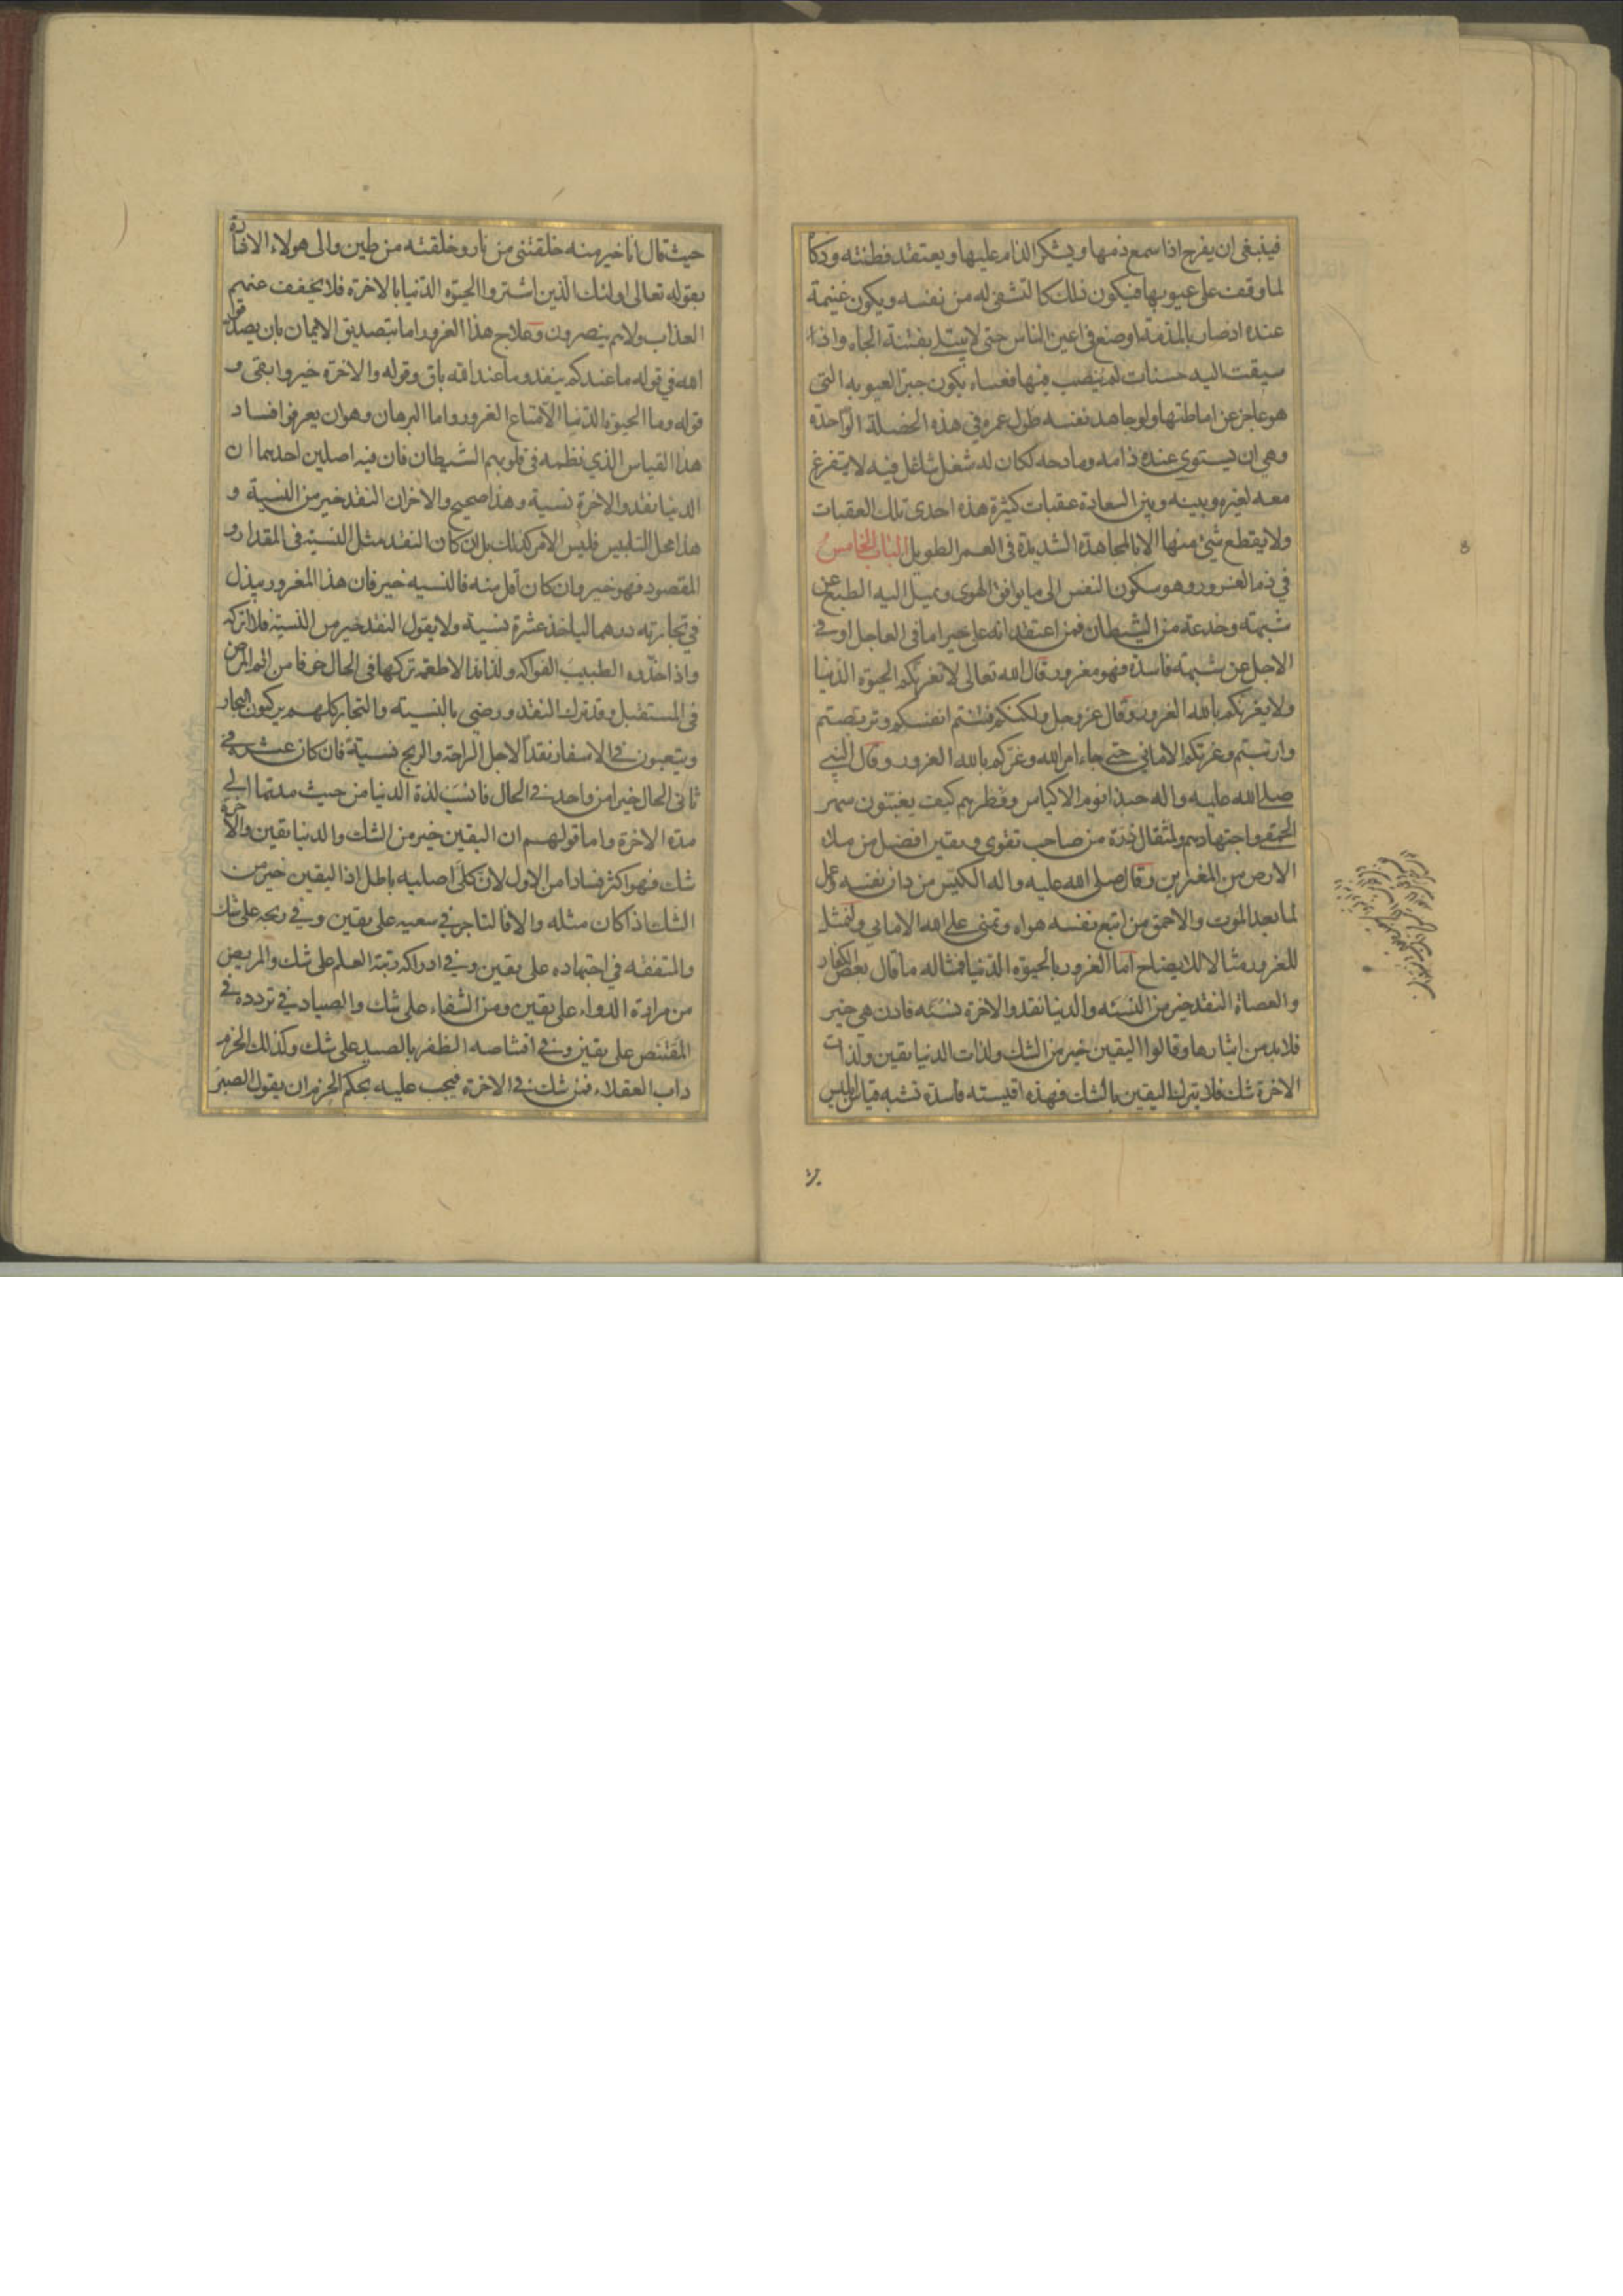 فينبغي ان يفرح اذا سمع ذمها ويشكر الذام عليها ويعتقد فطنته وذكاه
لما وقف على عيوبها فيكون ذلك كالتشفي له من نفسه ويكون غنيمة
عنده اذ صار بالمذمة اوضع في اعين الناس حتى لا يبتلى بفتنة الجاه واذا
سيقت اليه حسنات لم ينصب فيها فعساه يكون جبرا لعيوبه التي
هو عاجز عن اماطتها ولو جاهد نفسه طول عمره في هذه الخصلة الواحدة
وهي ان يستوى عنده ذامه ومادحه لكان له شغل شاغل فيه لا يتفرغ
معه لغيره وبينه وبين السعادة عقبات كثيرة هذه احدى تلك العقبات
ولا يقطع شئ منها الا بالمجاهدة الشديدة في العمر الطويل الباب الخامس
في ذم الغرور وهو سكون النفس الى ما يوافق الهوى ويميل اليه الطبع عن
شبهة وخدعة من الشيطان فمن اعتقد انه على خير اما في العاجل او في
الاجل عن شبهة فاسدة فهو مغرور قال الله تعالى لا تغرنكم الحيوة الدنيا
ولا يغرنكم بالله الغرور وقال عز وجل ولكنكم فتنتم انفسكم وتربصتم
وارتبتم وغرتكم الاماني حتى جاء امر الله وغركم بالله الغرور وقال النبي
صلى الله عليه واله حبذا نوم الاكياس وفطرهم كيف يغبنون سهر
الحمقى واجتهادهم ولمثقال ذرة من صاحب تقوى ويقين افضل من ملاء
الارض من المغترين وقال صلى الله عليه واله الكيس من دان نفسه وعمل
لما بعد الموت والاحمق من اتبع نفسه هواه وتمنى على الله الاماني ولنمثل
للغرور مثالا للايضاح اما الغرور بالحيوة الدنيا فمثاله ما قال بعض الكفار
والعصاة النقد خير من النسية والدنيا نقد والاخرة نسية فاذن هي خير
فلا بد من ايثارها وقالوا اليقين خير من الشك ولذات الدنيا يقين ولذات
الاخرة شك فلا يترك اليقين بالشك فهذه اقيسته فاسدة تشبه قياس ابليس
حيث قال انا خير منه خلقتني من نار وخلقته من طين والى هولاء الاشارة
بقوله تعالى اولئك الذين اشتروا الحيوة الدنيا بالاخرة فلا يخفف عنهم
العذاب ولا هم ينصرون وعلاج هذا الغرور اما بتصديق الايمان بان يصدق
الله في قوله ما عندكم ينفد وما عند الله باق وقوله والاخرة خير وابقى و
قوله وما الحيوة الدنيا الا متاع الغرور واما البرهان وهو ان يعرفوا فساد
هذا القياس الذي نظمه في قلوبهم الشيطان فان فيه اصلين احدهما ان
الدنيا نقد والاخرة نسية وهذا صحيح والاخر ان النقد خير من النسية و
هذا محل التلبيس فليس الامر كذلك بل ان كان النقد مثل النسية في المقدار و
المقصود فهو خير وان كان اقل منه فالنسيه خير فان هذا المغرور يبذل
في تجارته درهما لياخذ عشرة نسية ولا يقول النقد خير من النسية فلا اتركه
واذا حذره الطبيب الفواكه ولذائذ الاطعمة تركها في الحال خوفا من الم المرض
في المستقبل وقد ترك النقد ورضى بالنسية والتجار كلهم يركبون البحار
ويتعبون في الاسفار نقدا لاجل الراحة والربح نسية فان كان عشرة في
ثانى الحال خيرا من واحد في الحال فانسب لذة الدنيا من حيث مدتها الى
مدة الاخرة واما قولهم ان اليقين خير من الشك والدنيا يقين والاخرة
شك فهو اكثر فسادا من الاول لان كلى اصليه باطل اذ اليقين خير من
الشك اذا كان مثله والا فالتاجر في سعيه على يقين وفي ربحه على شك
والمتفقه في اجتهاده على يقين وفي ادراكه رتبة العلم على شك والمريض
من مرارة الدواء على يقين ومن الشفاء على شك والصياد في تردده في
المقتنص على يقين وفي اقتناصه الظفر بالصيد على شك وكذلك الحزم
داب العقلاء فمن شك في الاخرة فيجب عليه بحكم الحزم ان يقول الصبر